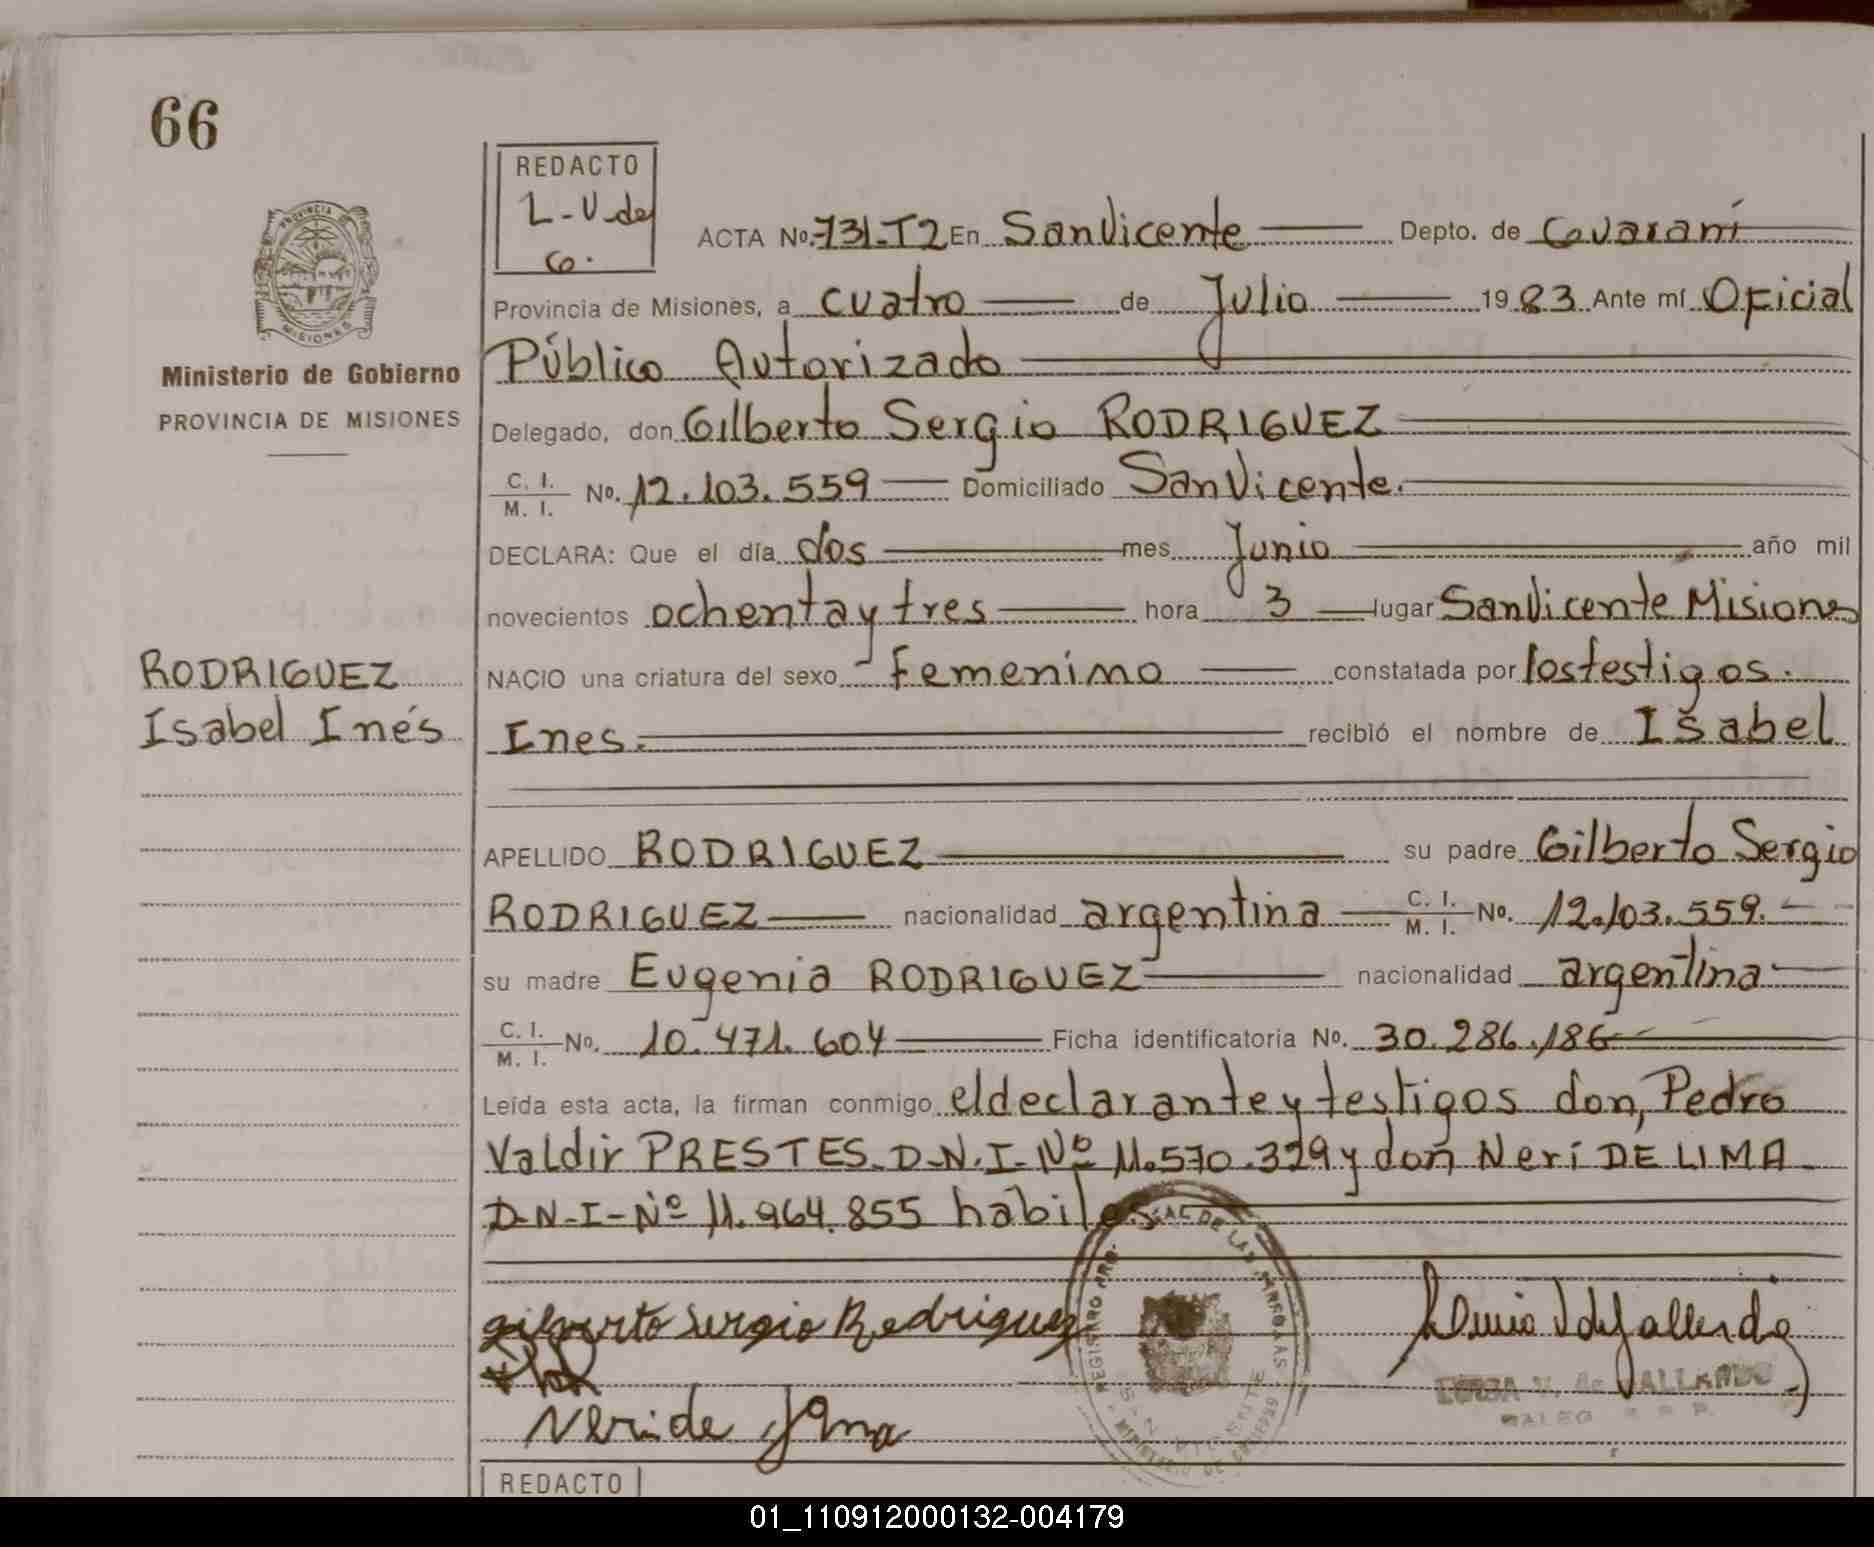 66
REDACTO
L-V-de
G.
PROVINCIA
MISIONES
Ministerio de Gobierno
PROVINCIA DE MISIONES
ACTA No. 731-T2 En San Vicente Depto. de Guaraní
Provincia de Misiones, a cuatro de Julio 1983 Ante mí Oficial
Público Autorizado
Delegado, don Gilberto Sergio RODRIGUEZ
C. I. / M. I. No. 12.103.559 Domiciliado San Vicente.
DECLARA: Que el día dos mes Junio año mil
novecientos ochenta y tres hora 3 lugar San Vicente Misiones
NACIO una criatura del sexo Femenino constatada por los testigos.
Ines. recibió el nombre de Isabel
RODRIGUEZ
Isabel Inés
APELLIDO RODRIGUEZ su padre Gilberto Sergio
RODRIGUEZ nacionalidad argentina C. I. / M. I. No. 12.103.559.
su madre Eugenia RODRIGUEZ nacionalidad argentina
C. I. / M. I. No. 10.471.604 Ficha identificatoria No. 30.286.186
Leída esta acta, la firman conmigo el declarante y testigos don, Pedro
Valdir PRESTES D-N-I-Nº 11.570.329 y don Neri DE LIMA
D-N-I-Nº 11.964.855 habiles
Gilberto Sergio Rodriguez
Neri de Lima
REGISTRO PRO. DE LAS PERSONAS
SAN VICENTE
MINISTERIO DE GOBIERNO
V. de GALLARDO
REDACTO
01_110912000132-004179